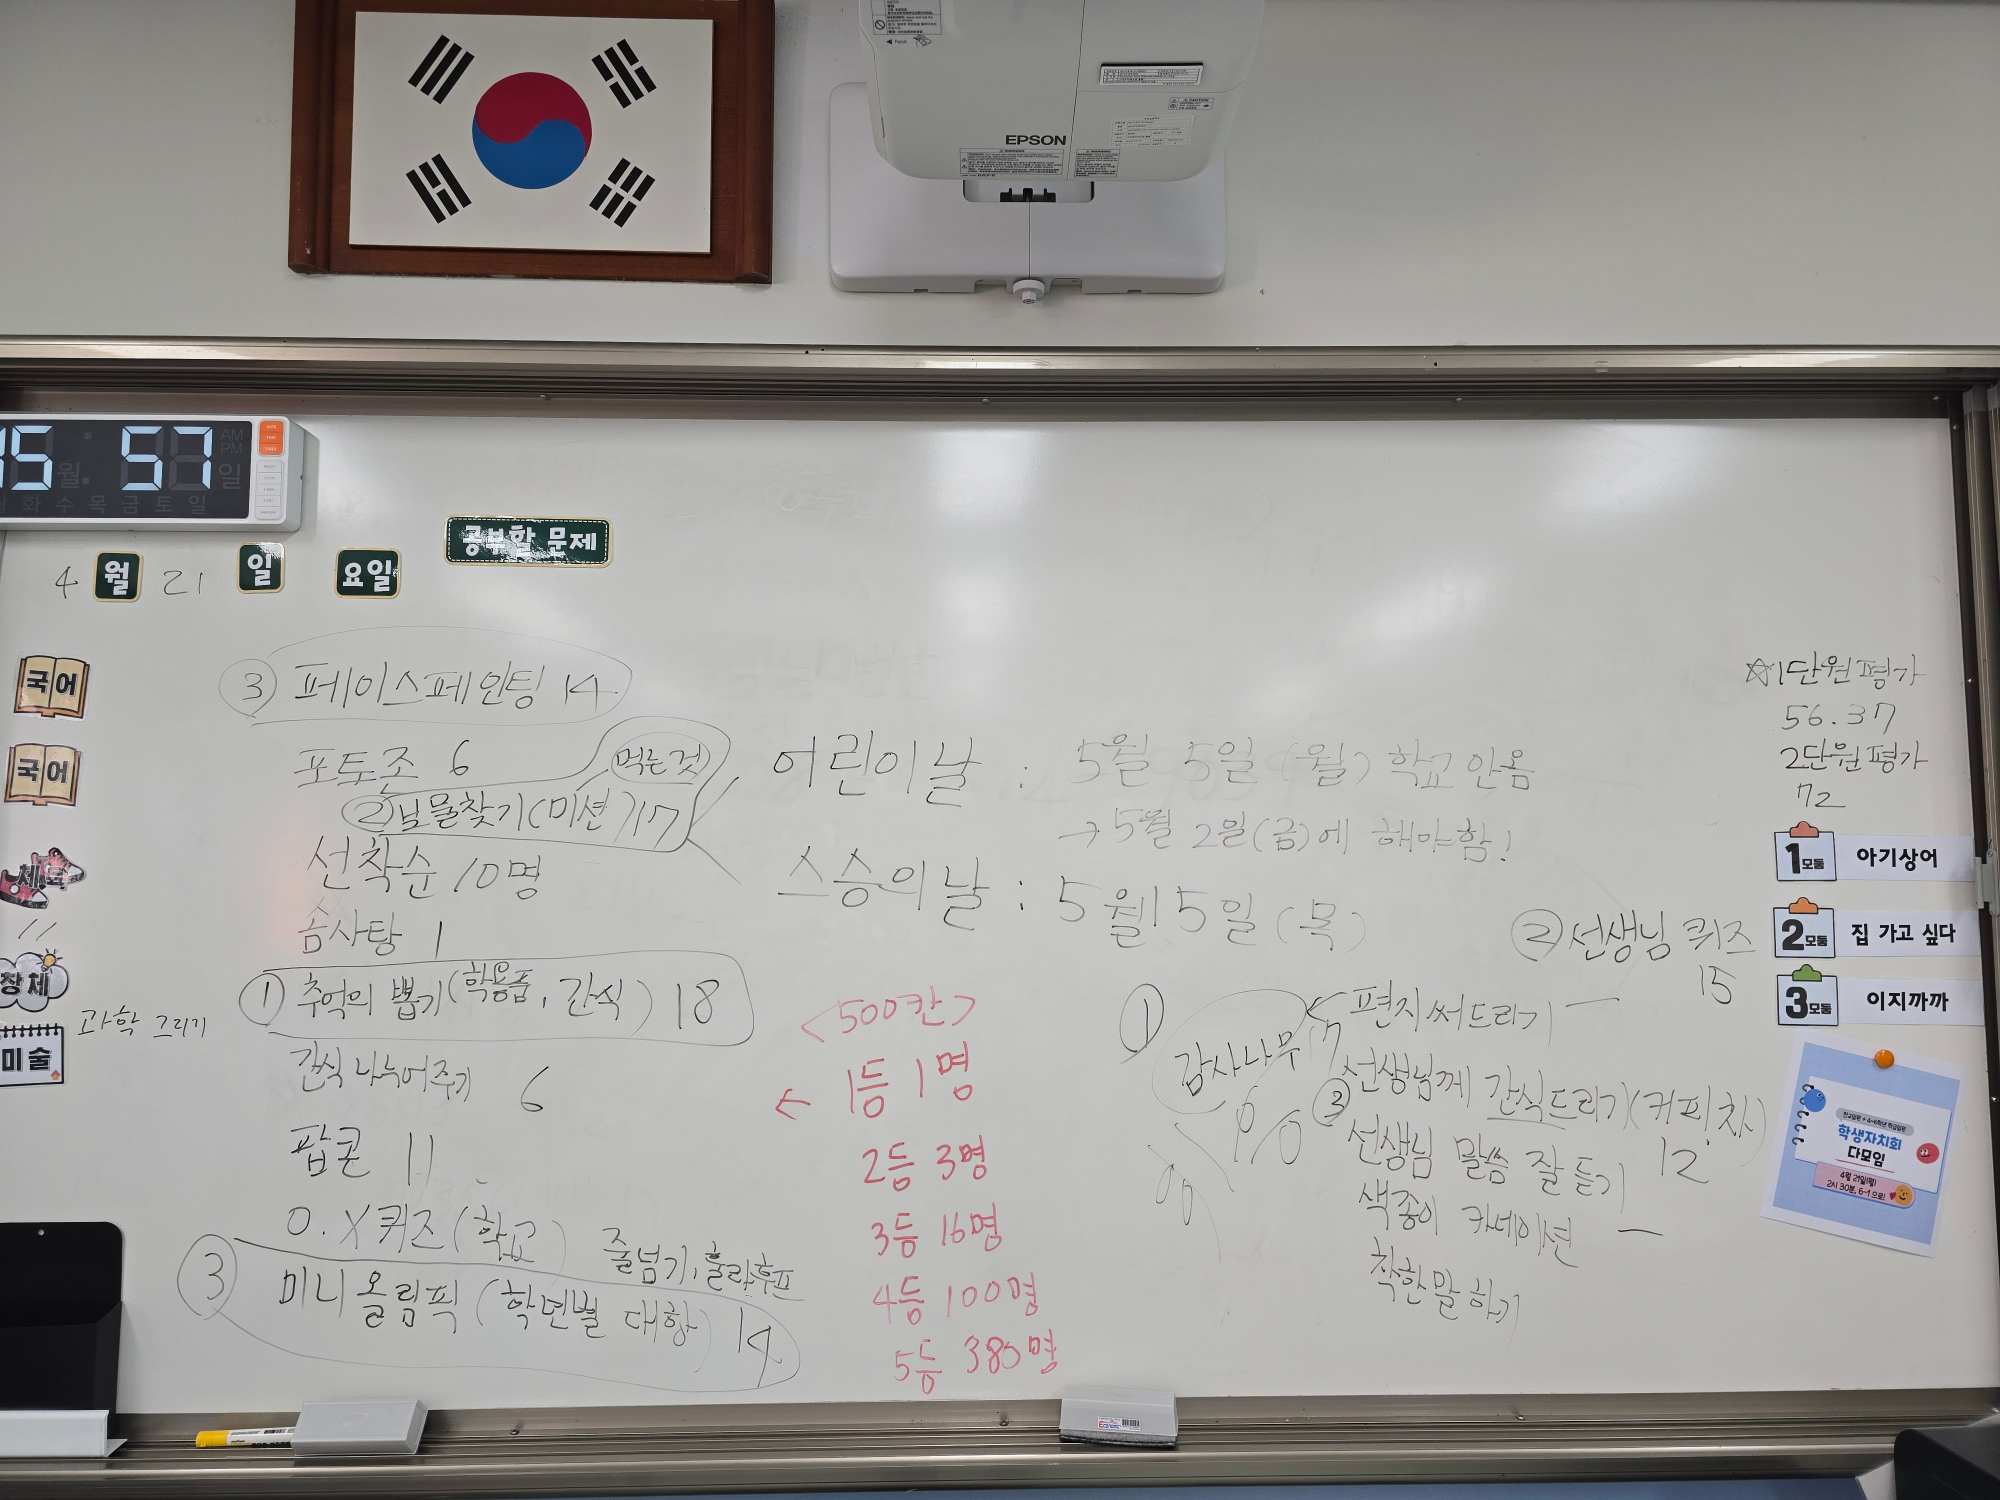 EPSON
15 57
AM
PM
월 일
화 수 목 금 토 일
공부할 문제
4 월 21 일 요일
국어
국어
체육
〃
창체
미술
과학 그리기
③ 페이스페인팅 14
포토존 6
먹는것
② 보물찾기(미션) 17
선착순 10명
솜사탕 1
① 추억의 뽑기(학용품, 간식) 18
간식 나누어주기 6
팝콘 11
O.X퀴즈(학교)
줄넘기, 훌라후프
③ 미니 올림픽 (학년별 대항) 14
어린이날 : 5월 5일 (월) 학교 안옴
→ 5월 2일(금)에 해야함!
스승의날 : 5월15일 (목)
<500칸>
← 1등 1명
2등 3명
3등 16명
4등 100명
5등 380명
② 선생님 퀴즈
15
①
감사나무
편지써드리기
선생님께 간식드리기(커피차)
③
12
선생님 말씀 잘 듣기
색종이 카네이션
착한말 하기
☆1단원평가
56.37
2단원평가
72
1모둠 아기상어
2모둠 집 가고 싶다
3모둠 이지까까
전교임원 + 4~6학년 학급임원
학생자치회
다모임
4월 21일(월)
2시 30분, 6-1 으로!